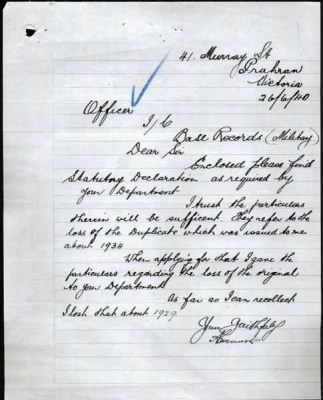 41. Murray St
Prahran
Victoria
26/6/40
Officer
I/C
Base Records (Military)
Dear Sir
Enclosed please find
Statutory Declaration as required by
your Department
I trust the particulars
therein will be sufficient. They refer to the
loss of the Duplicate which was issued to me
about 1934
When applying for that I gave the
particulars regarding the loss of the original
to your Department.
As far as I can recollect
I lost that about 1929.
Yours faithfully